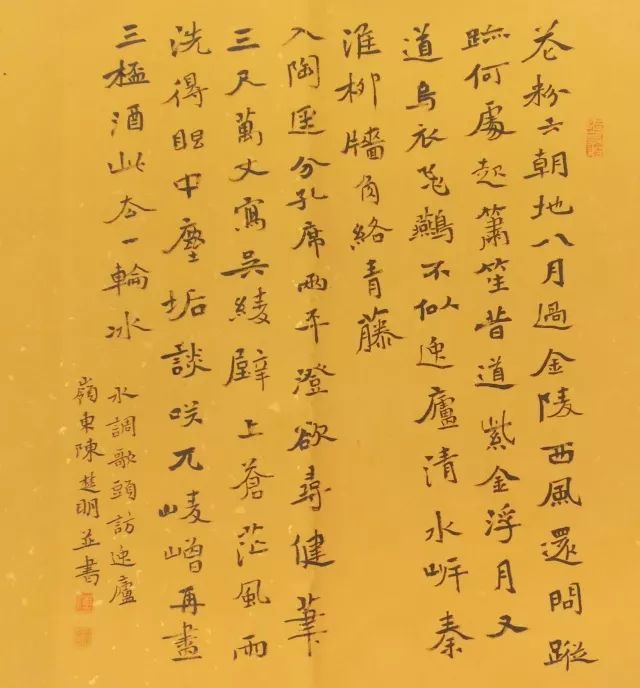 花粉六朝地八月過金陵西風還問蹤
跡何處起簫笙昔道紫金浮月又
道烏衣飛鷰不似逸廬清水岍秦
淮柳牆角絡青藤
入陶逕分孔席兩平澄欲尋健筆
三尺萬丈寫吳綾壁上蒼茫風雨
洗得眼中塵垢談咲兀崚嶒再盡
三酒此去一輪冰
水調歌頭訪逸廬
嶺東陳楚明並書